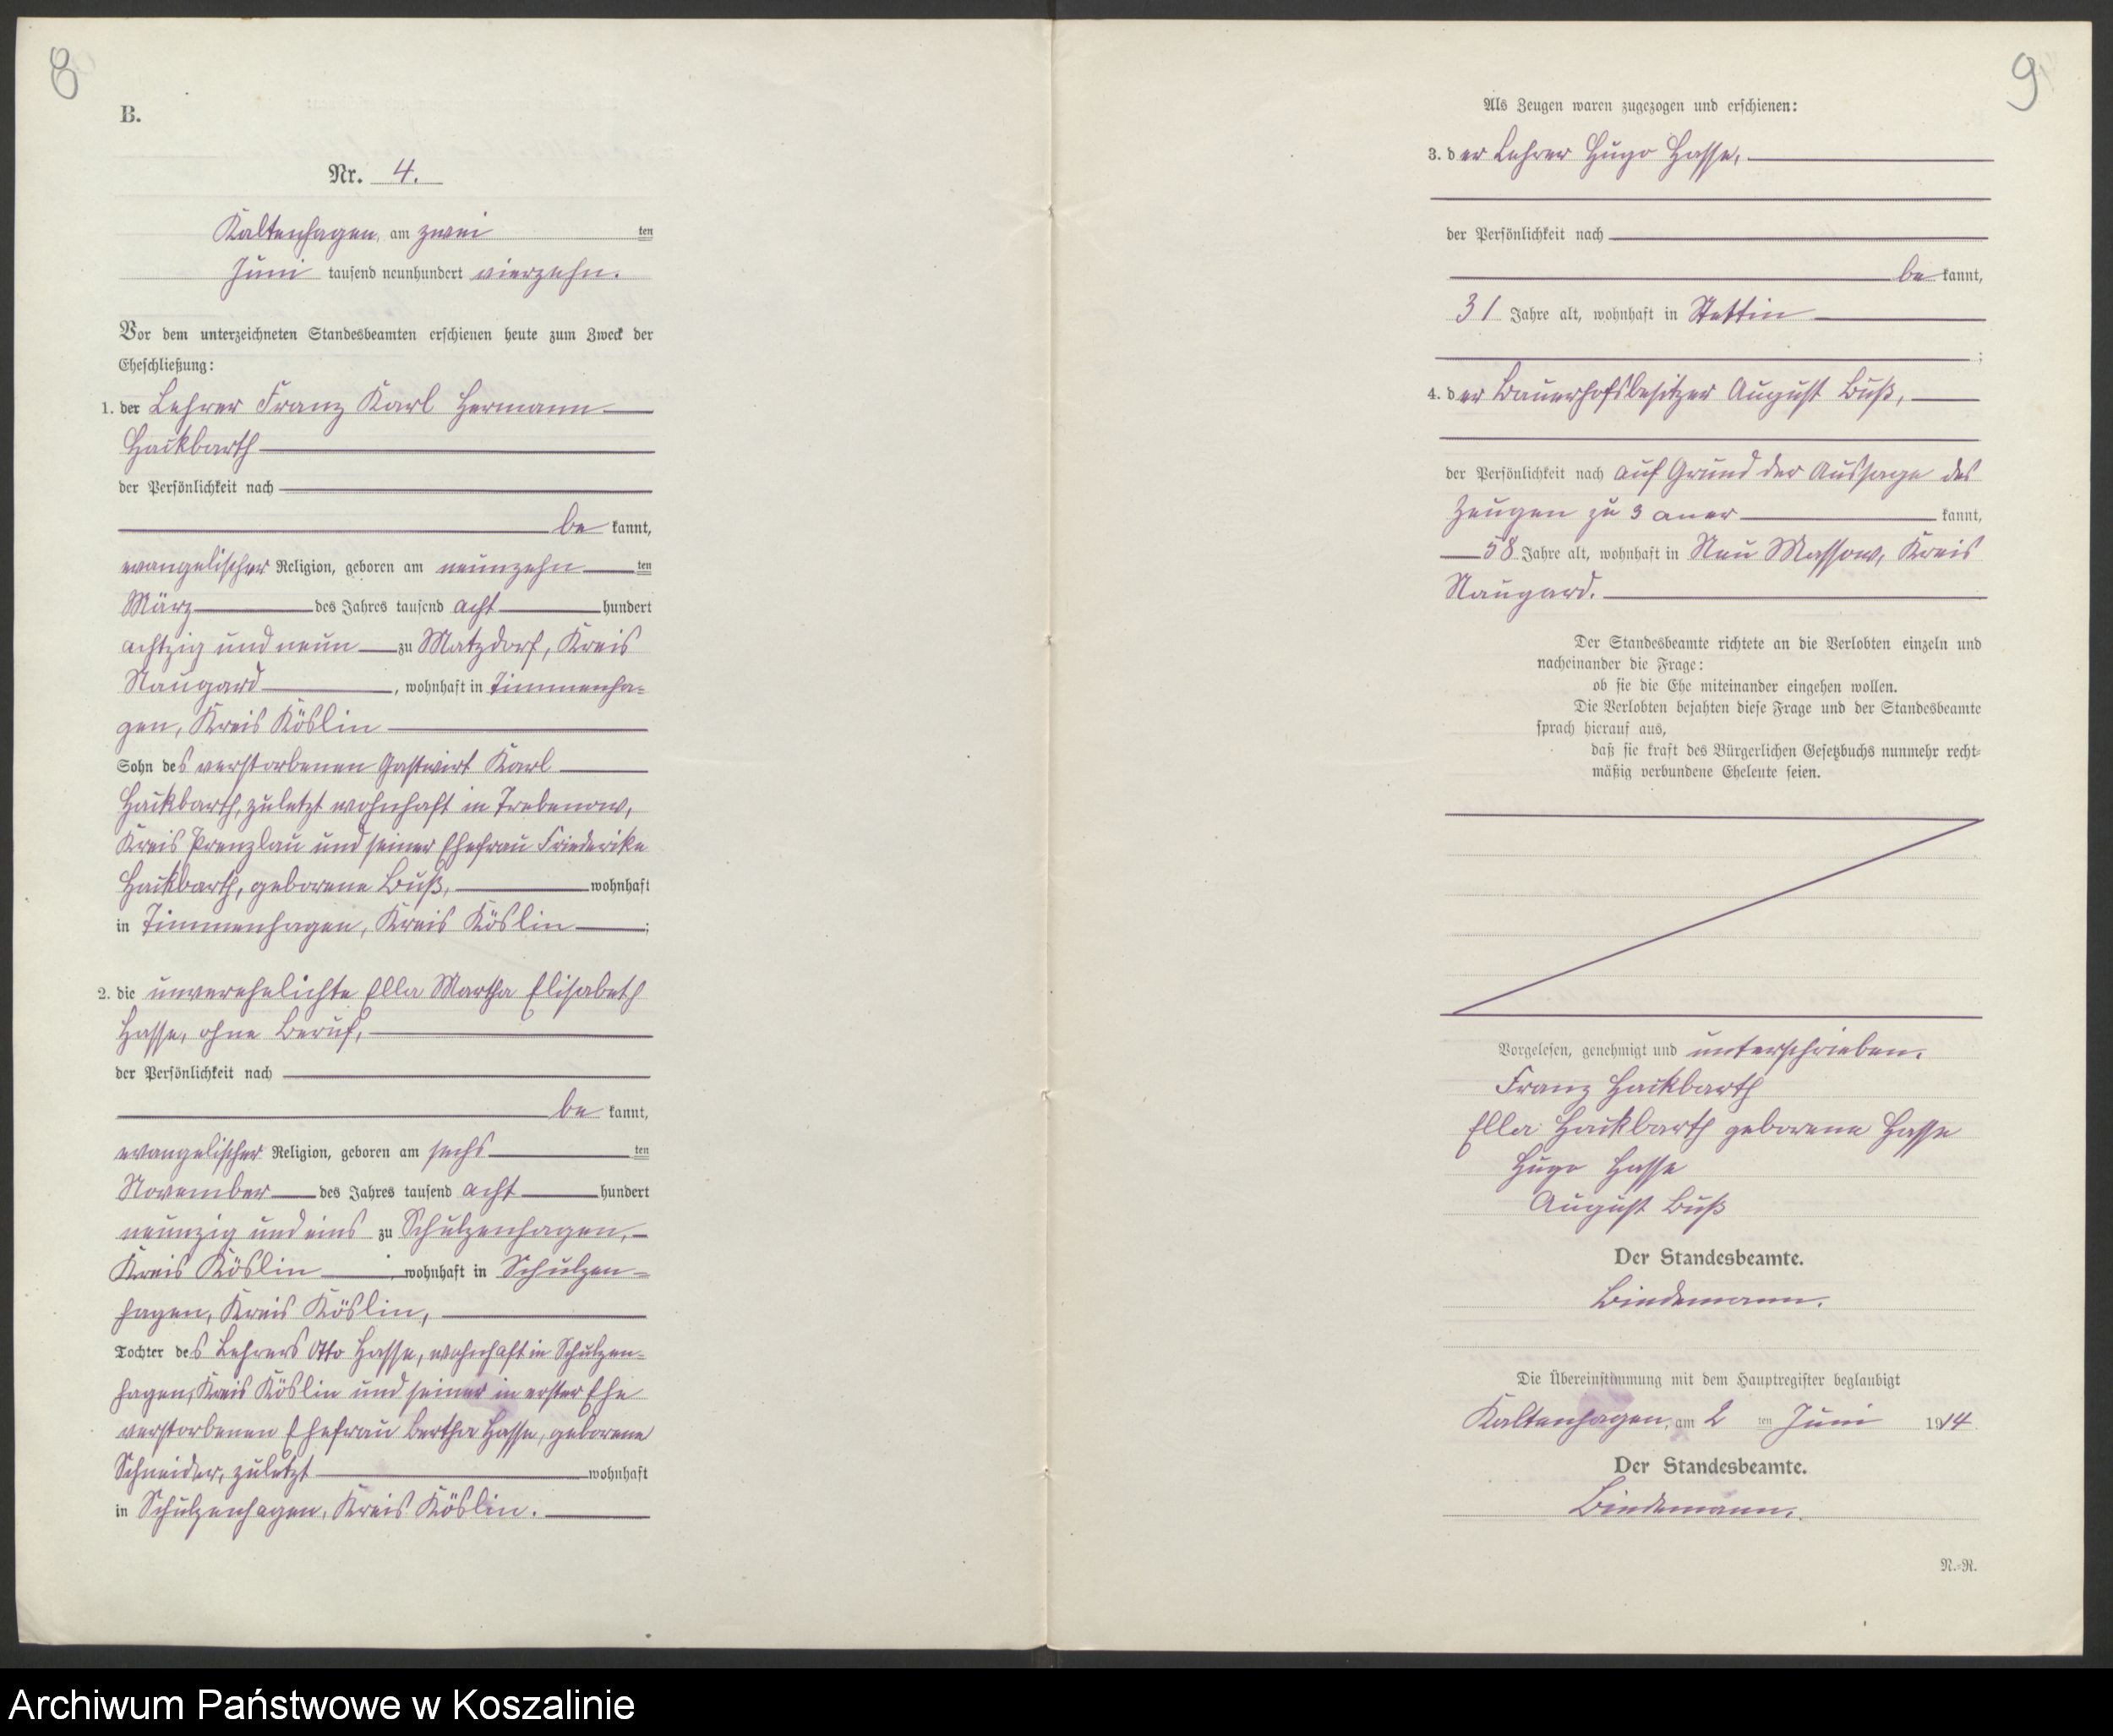 8
B.
Nr. 4.
Kaltenhagen, am zwei ten
Juni tausend neunhundert vierzehn.
Vor dem unterzeichneten Standesbeamten erschienen heute zum Zweck der
Eheschließung:
1. der Lehrer Franz Karl Hermann
Hackbarth
der Persönlichkeit nach
be kannt,
evangelischer Religion, geboren am neunzehn ten
März des Jahres tausend acht hundert
achtzig und neun zu Matzdorf, Kreis
Naugard, wohnhaft in Timmenha-
gen, Kreis Köslin
Sohn des verstorbenen Gastwirt Karl
Hackbarth, zuletzt wohnhaft in Trebenow,
Kreis Prenzlau und seiner Ehefrau Friederike
Hackbarth, geborene Buß, wohnhaft
in Timmenhagen, Kreis Köslin ;
2. die unverehelichte Ella Martha Elisabeth
Hasse, ohne Beruf,
der Persönlichkeit nach
be kannt,
evangelischer Religion, geboren am sechs ten
November des Jahres tausend acht hundert
neunzig und eins zu Schulzenhagen,
Kreis Köslin, wohnhaft in Schulzen-
hagen, Kreis Köslin,
Tochter des Lehrers Otto Hasse, wohnhaft in Schulzen-
hagen, Kreis Köslin und seiner in erster Ehe
verstorbenen Ehefrau Bertha Hasse, geborene
Schneider, zuletzt wohnhaft
in Schulzenhagen, Kreis Köslin.
9
Als Zeugen waren zugezogen und erschienen:
3. der Lehrer Hugo Hasse,
der Persönlichkeit nach
be kannt,
31 Jahre alt, wohnhaft in Stettin
;
4. der Bauerhofsbesitzer August Buß,
der Persönlichkeit nach auf Grund der Aussage des
Zeugen zu 3 aner kannt,
58 Jahre alt, wohnhaft in Neu Massow, Kreis
Naugard.
Der Standesbeamte richtete an die Verlobten einzeln und
nacheinander die Frage:
ob sie die Ehe miteinander eingehen wollen.
Die Verlobten bejahten diese Frage und der Standesbeamte
sprach hierauf aus,
daß sie kraft des Bürgerlichen Gesetzbuchs nunmehr recht-
mäßig verbundene Eheleute seien.
Vorgelesen, genehmigt und unterschrieben.
Franz Hackbarth
Ella Hackbarth geborene Hasse
Hugo Hasse
August Buß
Der Standesbeamte.
Lindemann.
Die Übereinstimmung mit dem Hauptregister beglaubigt
Kaltenhagen, am 2 ten Juni 1914
Der Standesbeamte.
Lindemann.
N.-R.
Archiwum Państwowe w Koszalinie